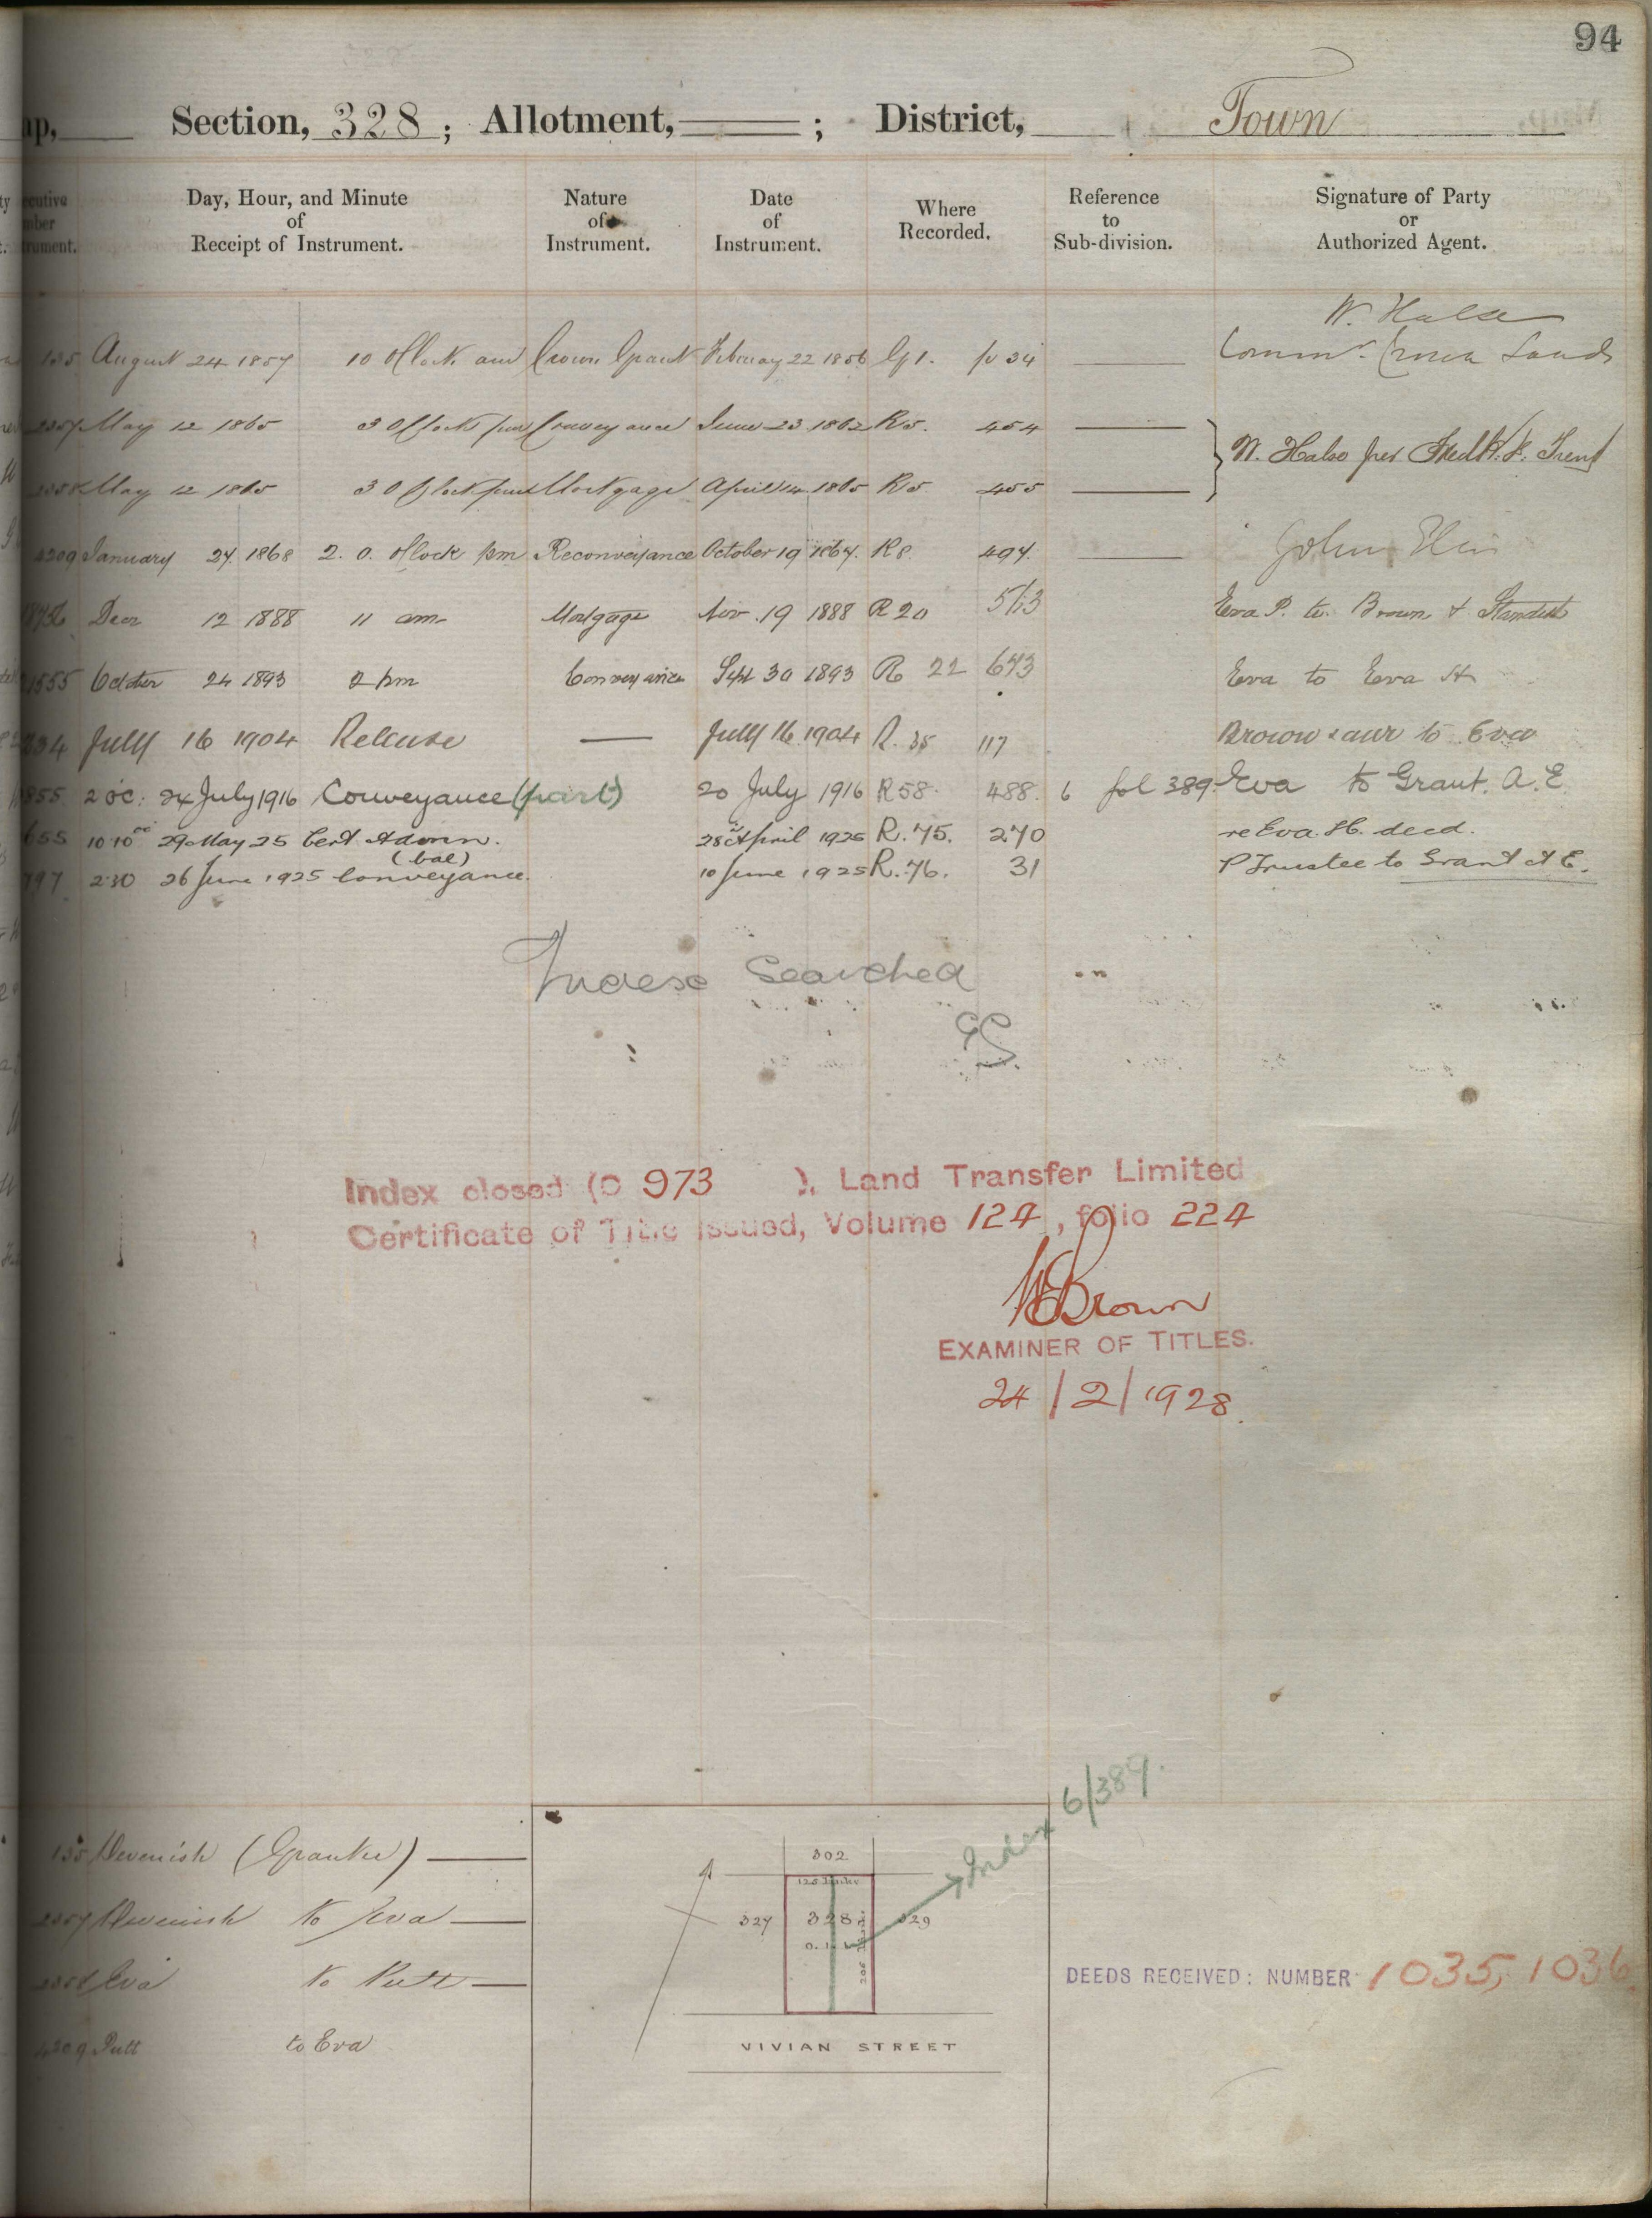 94
Section, 328 ; Allotment, ; District, Town
Day, Hour, and Minute of Receipt of Instrument.
Nature of Instrument.
Date of Instrument.
Where Recorded.
Reference to Sub-division.
Signature of Party or Authorized Agent.
W. Halse
135 August 24 1857 10 O'Clock am Crown Grant February 22 1856 G1. fo 34 Commr. Crown Lands
2357 May 12 1865 3 O'Clock pm Conveyance June 23 1862 R5. 454
W. Halse per
2358 May 12 1865 3 O'Clock pm Mortgage April 14 1865 R5 455
4209 January 24. 1868 2. O. Clock pm Reconveyance October 19 1867. R8 494. John
Decr 12 1888 11 am Mortgage Nov. 19 1888 R 20 513 Eva P. to Brown & Standish
1555 October 24 1893 2 pm Conveyance Sept 30 1893 R 22 673 Eva to Eva H
July 16 1904 Release July 16 1904 R. 35 117 Brown & anr to Eva
855 2 oc: 24 July 1916 Conveyance (part) 20 July 1916 R 58. 488. 6 fol 389. Eva to Grant. A. E
655 10.10 29 May 25 Cert Admin. 28 April 1925 R. 75. 270 re Eva. H. decd.
(bal)
797 2.30 26 June 1925 Conveyance. 10 June 1925 R. 76. 31 P Trustee to Grant A E.
Index Searched
Index closed (C 973 ). Land Transfer Limited
Certificate of Title issued, Volume 124, folio 224
Brown
EXAMINER OF TITLES.
24/2/1928.
Index 6/389.
135 Devenish (Grantee)
2357 Devenish to Eva
2358 Eva to Putt
4209 Putt to Eva
302
327 328 329
VIVIAN STREET
DEEDS RECEIVED: NUMBER 1035, 1036